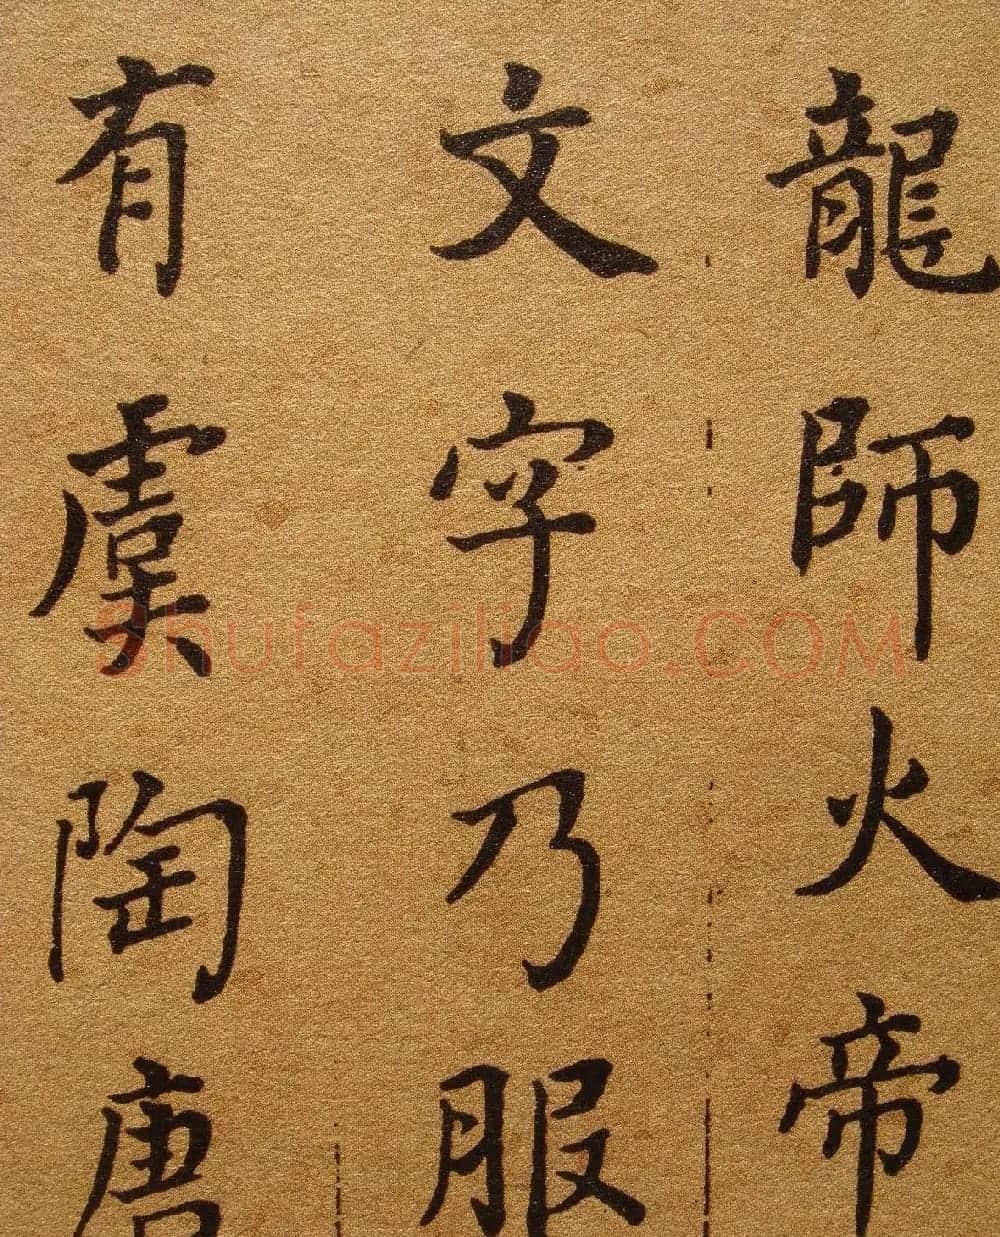 龍師火帝
文字乃服
有虞陶唐
Shufaziliao.COM